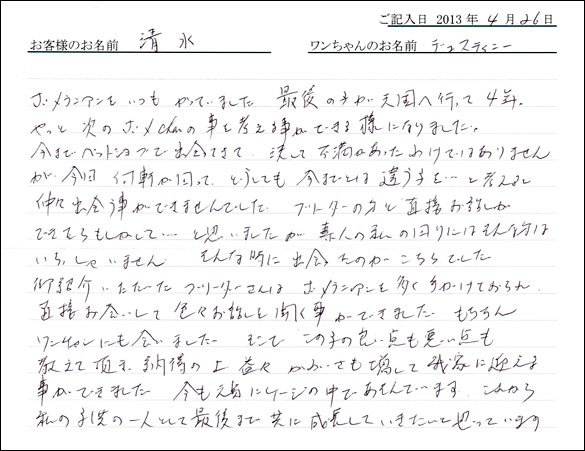 ご記入日 2013年 4月26日
お客様のお名前 清水 ワンちゃんのお名前 デスティニー
ポメラニアンをいつもかっていました 最後の子が天国へ行って4年。
やっと次のポメchanの事を考える事ができる様になりました。
今までペットショップで出会てきて、決して不満があったわけではありません
が、今回 何軒か回って、どうしても今までとは違う子を…と考えると
仲々出会う事ができませんでした。ブリーダーの方と直接お話しが
できたらもしかして…と思いましたが 素人の私の回りにはそんな方は
いらっしゃいません そんな時に出会えたのがこちらでした
御紹介いただいたブリーダーさんは ポメラニアンを多く手がけておられ
直接お会いして色々お話しを聞く事ができました もちろん
ワンちゃんにも会いました そして この子の良い点も悪い点も
教えて頂き、納得の上 益々かわいさも増して 我家に迎える
事ができました 今も元気にケージの中であそんでいます。これから
私の子供の一人として最後まで共に成長していきたいと思っています